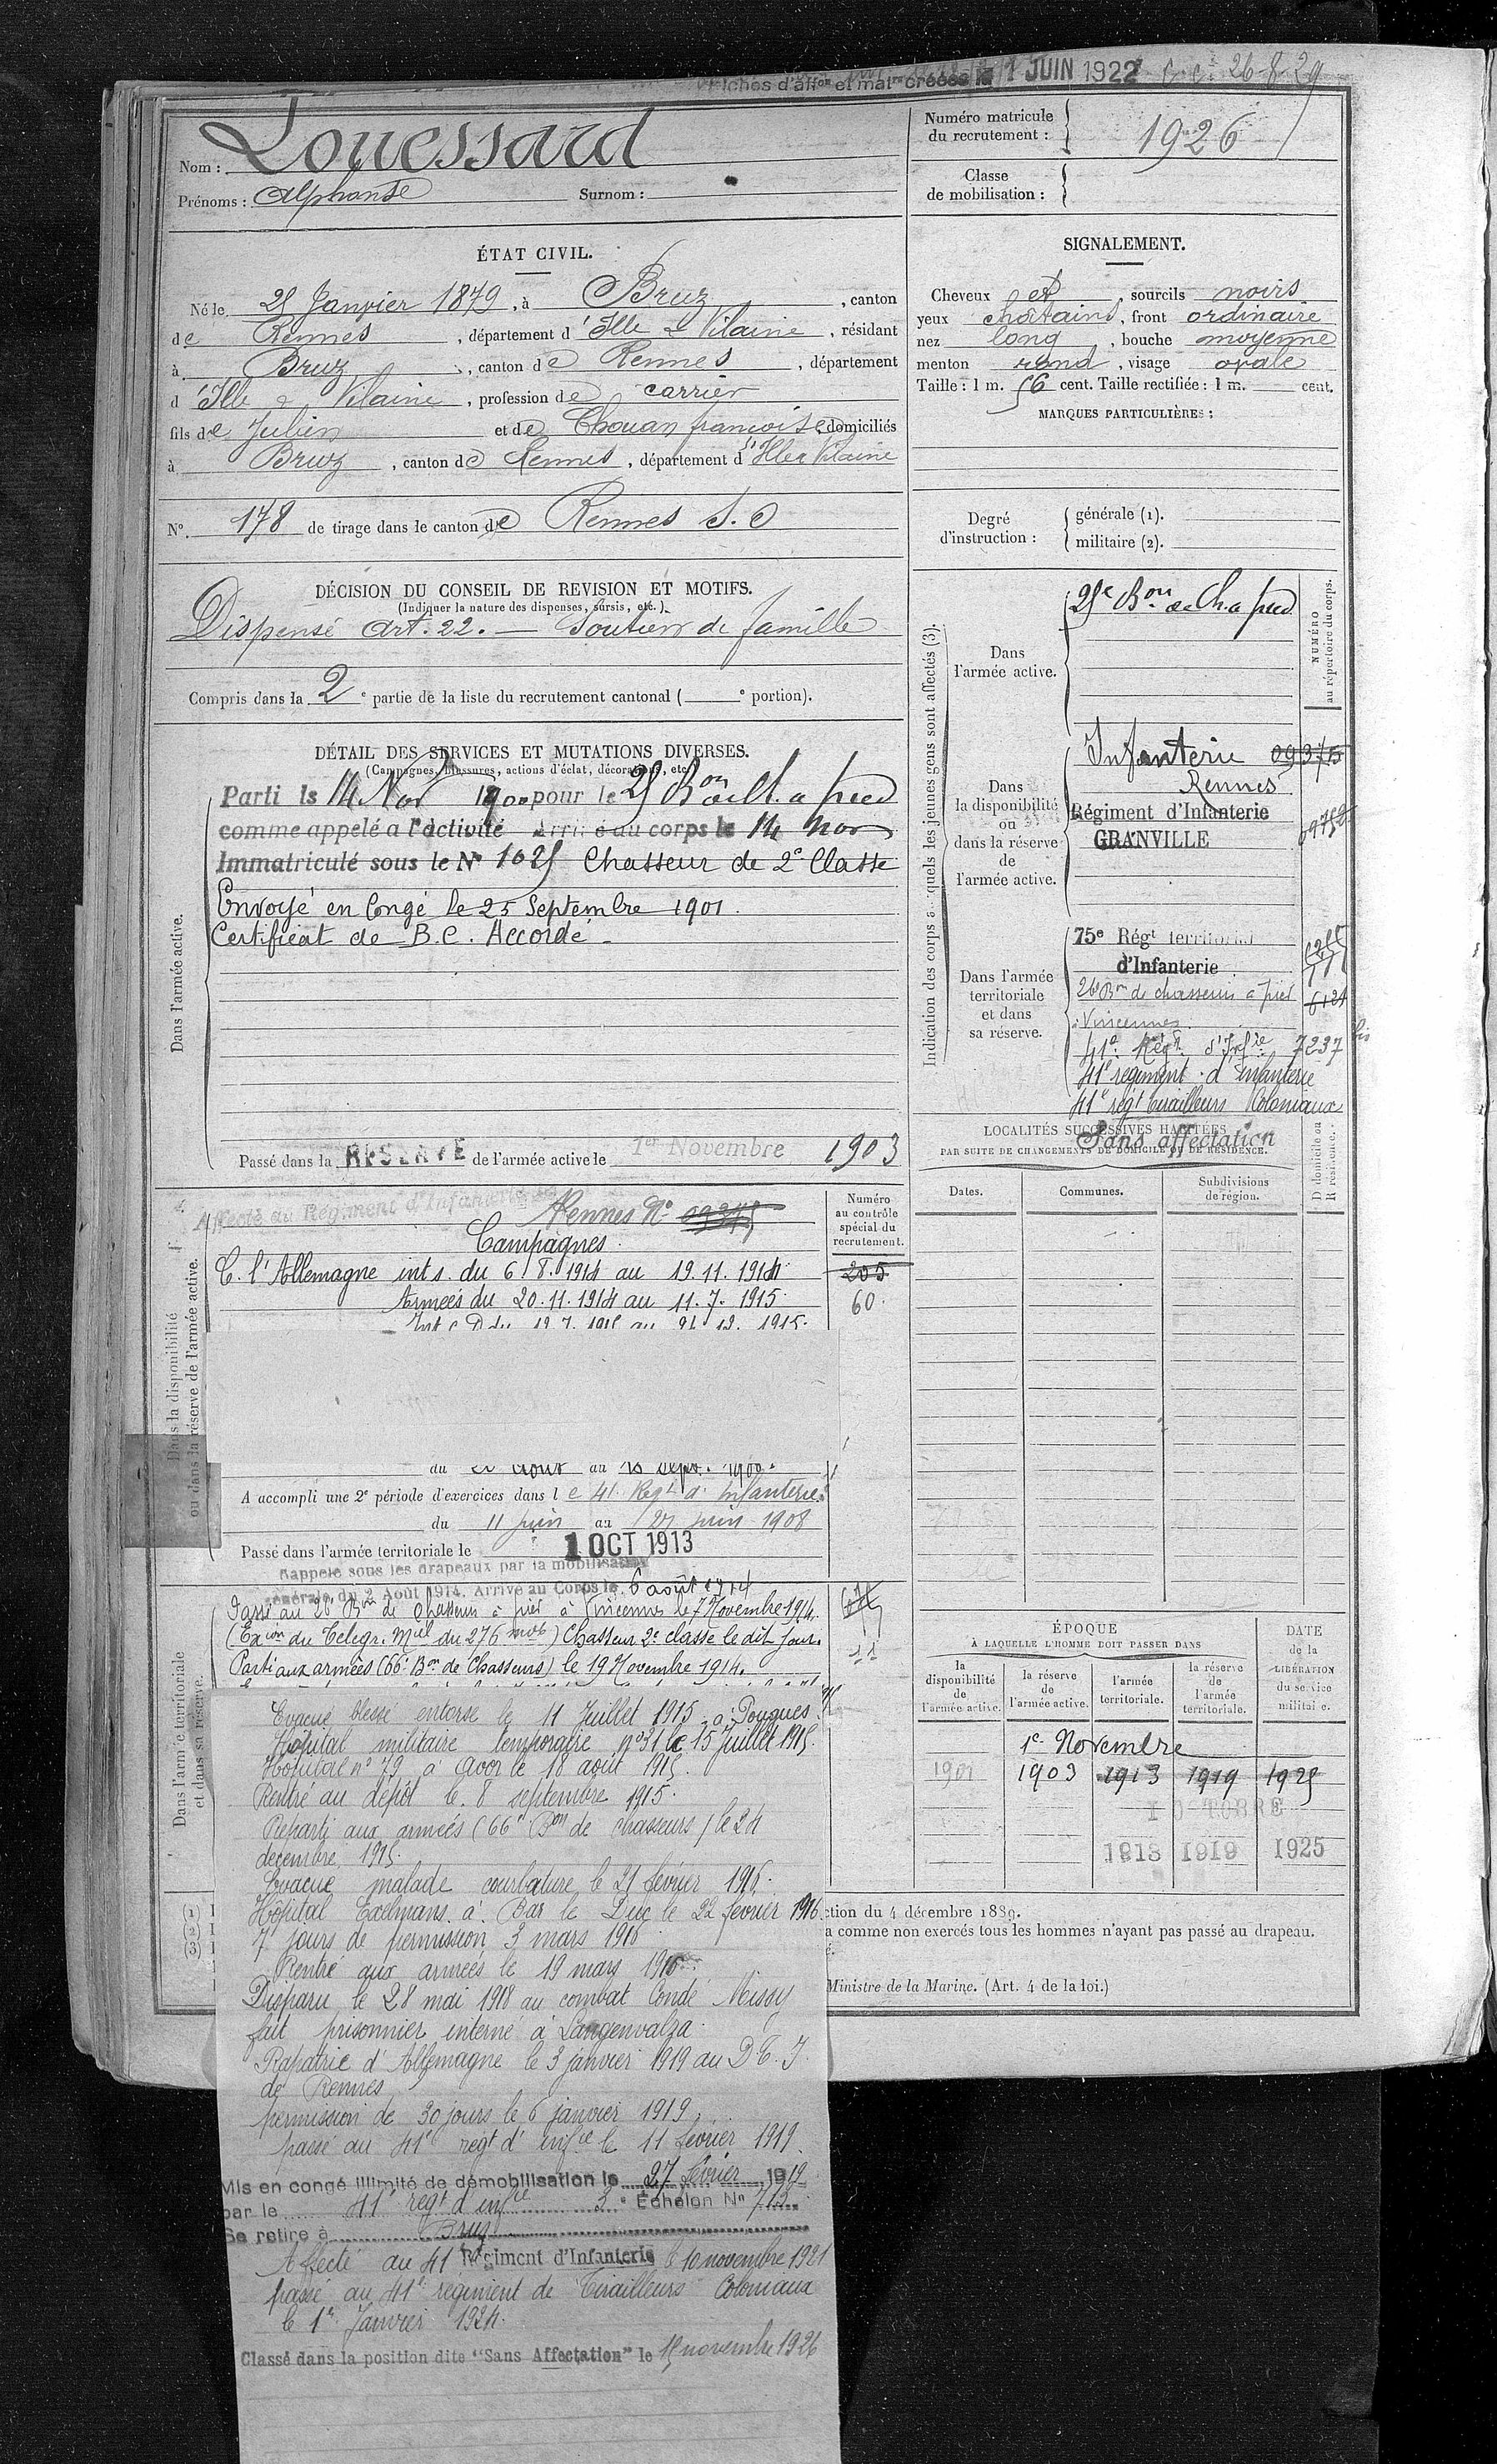 Fiches d'aff^on et mat^re créées le 1 JUIN 1922 c.c. 26-8-29
Nom : Louessard
Prénoms : Alphonse Surnom :
Numéro matricule du recrutement : 1926
Classe de mobilisation :
ÉTAT CIVIL.
Né le 25 Janvier 1879, à Bruz, canton
de Rennes, département d'Ille & Vilaine, résidant
à Bruz, canton de Rennes, département
d'Ille & Vilaine, profession de carrier
fils de Julien et de Chouan françoise domiciliés
à Bruz, canton de Rennes, département d'Ille & Vilaine
N° 178 de tirage dans le canton de Rennes S.O
SIGNALEMENT.
Cheveux et, sourcils noirs
yeux châtains, front ordinaire
nez long, bouche moyenne
menton rond, visage ovale
Taille : 1 m. 56 cent. Taille rectifiée : 1 m. cent.
MARQUES PARTICULIÈRES :
Degré d'instruction : générale (1).
militaire (2).
DÉCISION DU CONSEIL DE REVISION ET MOTIFS.
(Indiquer la nature des dispenses, sursis, etc.).
Dispensé art. 22. — Soutien de famille
Compris dans la 2e partie de la liste du recrutement cantonal ( e portion).
DÉTAIL DES SERVICES ET MUTATIONS DIVERSES.
(Campagnes, blessures, actions d'éclat, décorations, etc.)
Dans l'armée active.
Parti le 14 Nov 1900 pour le 25 Bon de Ch. a pied
comme appelé a l'activité Arrivé au corps le 14 Nov
Immatriculé sous le N° 1025 Chasseur de 2e Classe
Envoyé en Congé le 25 Septembre 1901.
Certificat de B.C. Accordé
Passé dans la RESERVE de l'armée active le 1er Novembre 1903
Dans la disponibilité
ou dans la réserve de l'armée active.
Affecté au Régiment d'Infanterie de
Rennes N° 09375
Campagnes.
C. l'Allemagne int s. du 6.8.1914 au 19.11.1914
Armées du 20.11.1914 au 11.7.1915
1915.
Numéro
au contrôle
spécial du
recrutement.
205
60
du août au sept.
A accompli une 2e période d'exercices dans le 41. Regt d'Infanterie
du 11 juin au 27 juin 1908
Passé dans l'armée territoriale le 1 OCT 1913
Dans l'armée territoriale
et dans sa réserve.
Rappelé sous les drapeaux par la mobilisation
générale du 2 Août 1914. Arrivé au Corps le 6 août 1914
Passé au 26e Bon de Chasseurs à pied à Vincennes le 7 Novembre 1914.
(Exion du Telegr. Mel du 276 mob) Chasseur 2e classe le dit jour.
Parti aux armées (66e Bon de Chasseurs) le 19 Novembre 1914.
Evacué blessé entorse le 11 Juillet 1915 a Pougues
Hôpital militaire temporaire n°31 le 15 Juillet 1915.
Hôpital n° 79 a Avor le 18 août 1915.
Rentré au dépôt le 8 septembre 1915.
Reparti aux armées (66e Bon de chasseurs) le 24
décembre 1915.
Evacué malade courbature le 21 février 1916.
Hôpital Exelmans à Bar le Duc le 22 février 1916.
7 jours de permission 3 mars 1916
Rentré aux armées le 19 mars 1916.
Disparu le 28 mai 1918 au combat Condé Missy
fait prisonnier interné à Langenvalza.
Rapatrié d'Allemagne le 3 janvier 1919 au D.T.I.
de Rennes
permission de 30 jours le 6 janvier 1919.
passé au 41e regt d'infie le 11 février 1919.
Mis en congé illimité de démobilisation le 27 février 1919
par le 41e regt d'infie 3e Échelon N° 713
Se retire à Bruz
Affecté au 41e Régiment d'Infanterie le 10 novembre 1921
passé au 41e régiment de Tirailleurs Coloniaux
le 1er Janvier 1924.
Classé dans la position dite "Sans Affectation" le 15 novembre 1926
Indication des corps auxquels les jeunes gens sont affectés (3).
NUMÉRO
au répertoire du corps.
Dans l'armée active.
25e Bon de Ch. a pied
Dans la disponibilité ou dans la réserve de l'armée active.
Infanterie 09375
Rennes
Régiment d'Infanterie
GRANVILLE
Dans l'armée territoriale et dans sa réserve.
75e Régt territorial
d'Infanterie
26e Bon de chasseurs à pied
Vincennes
41e Régt d'Infie 7237 bis
41e régiment d'Infanterie
41e régt tirailleurs Coloniaux
Sans affectation
LOCALITÉS SUCCESSIVES HABITÉES
PAR SUITE DE CHANGEMENTS DE DOMICILE OU DE RÉSIDENCE.
Dates. Communes. Subdivisions de région. D domicile ou R résidence.
ÉPOQUE
À LAQUELLE L'HOMME DOIT PASSER DANS
DATE de la LIBÉRATION du service militaire.
la disponibilité de l'armée active.
la réserve de l'armée active.
l'armée territoriale.
la réserve de l'armée territoriale.
1er Novembre
1901 1903 1913 1919 1925
1 OCTOBRE
1913 1919 1925
(1)
(2)
(3)
ction du 4 décembre 1889.
a comme non exercés tous les hommes n'ayant pas passé au drapeau.
Ministre de la Marine. (Art. 4 de la loi.)